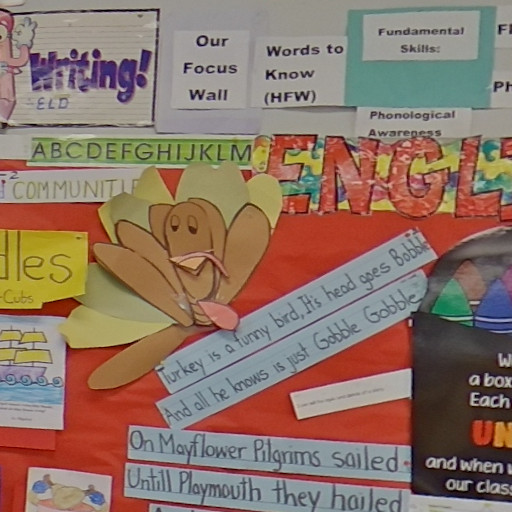 Writing!
-ELD
Our
Focus
Wall
Words to
Know
(HFW)
Fundamental
Skills:
Phonological
Awareness
ABCDEFGHIJKLM
ENGL
COMMUNITIE
dles
-Cubs
Turkey is a funny bird, It's head goes Bobble
And all he knows is just Gobble Gobble
On Mayflower Pilgrims sailed
Untill Playmouth they hailed
a box
Each
UN
and when w
our class